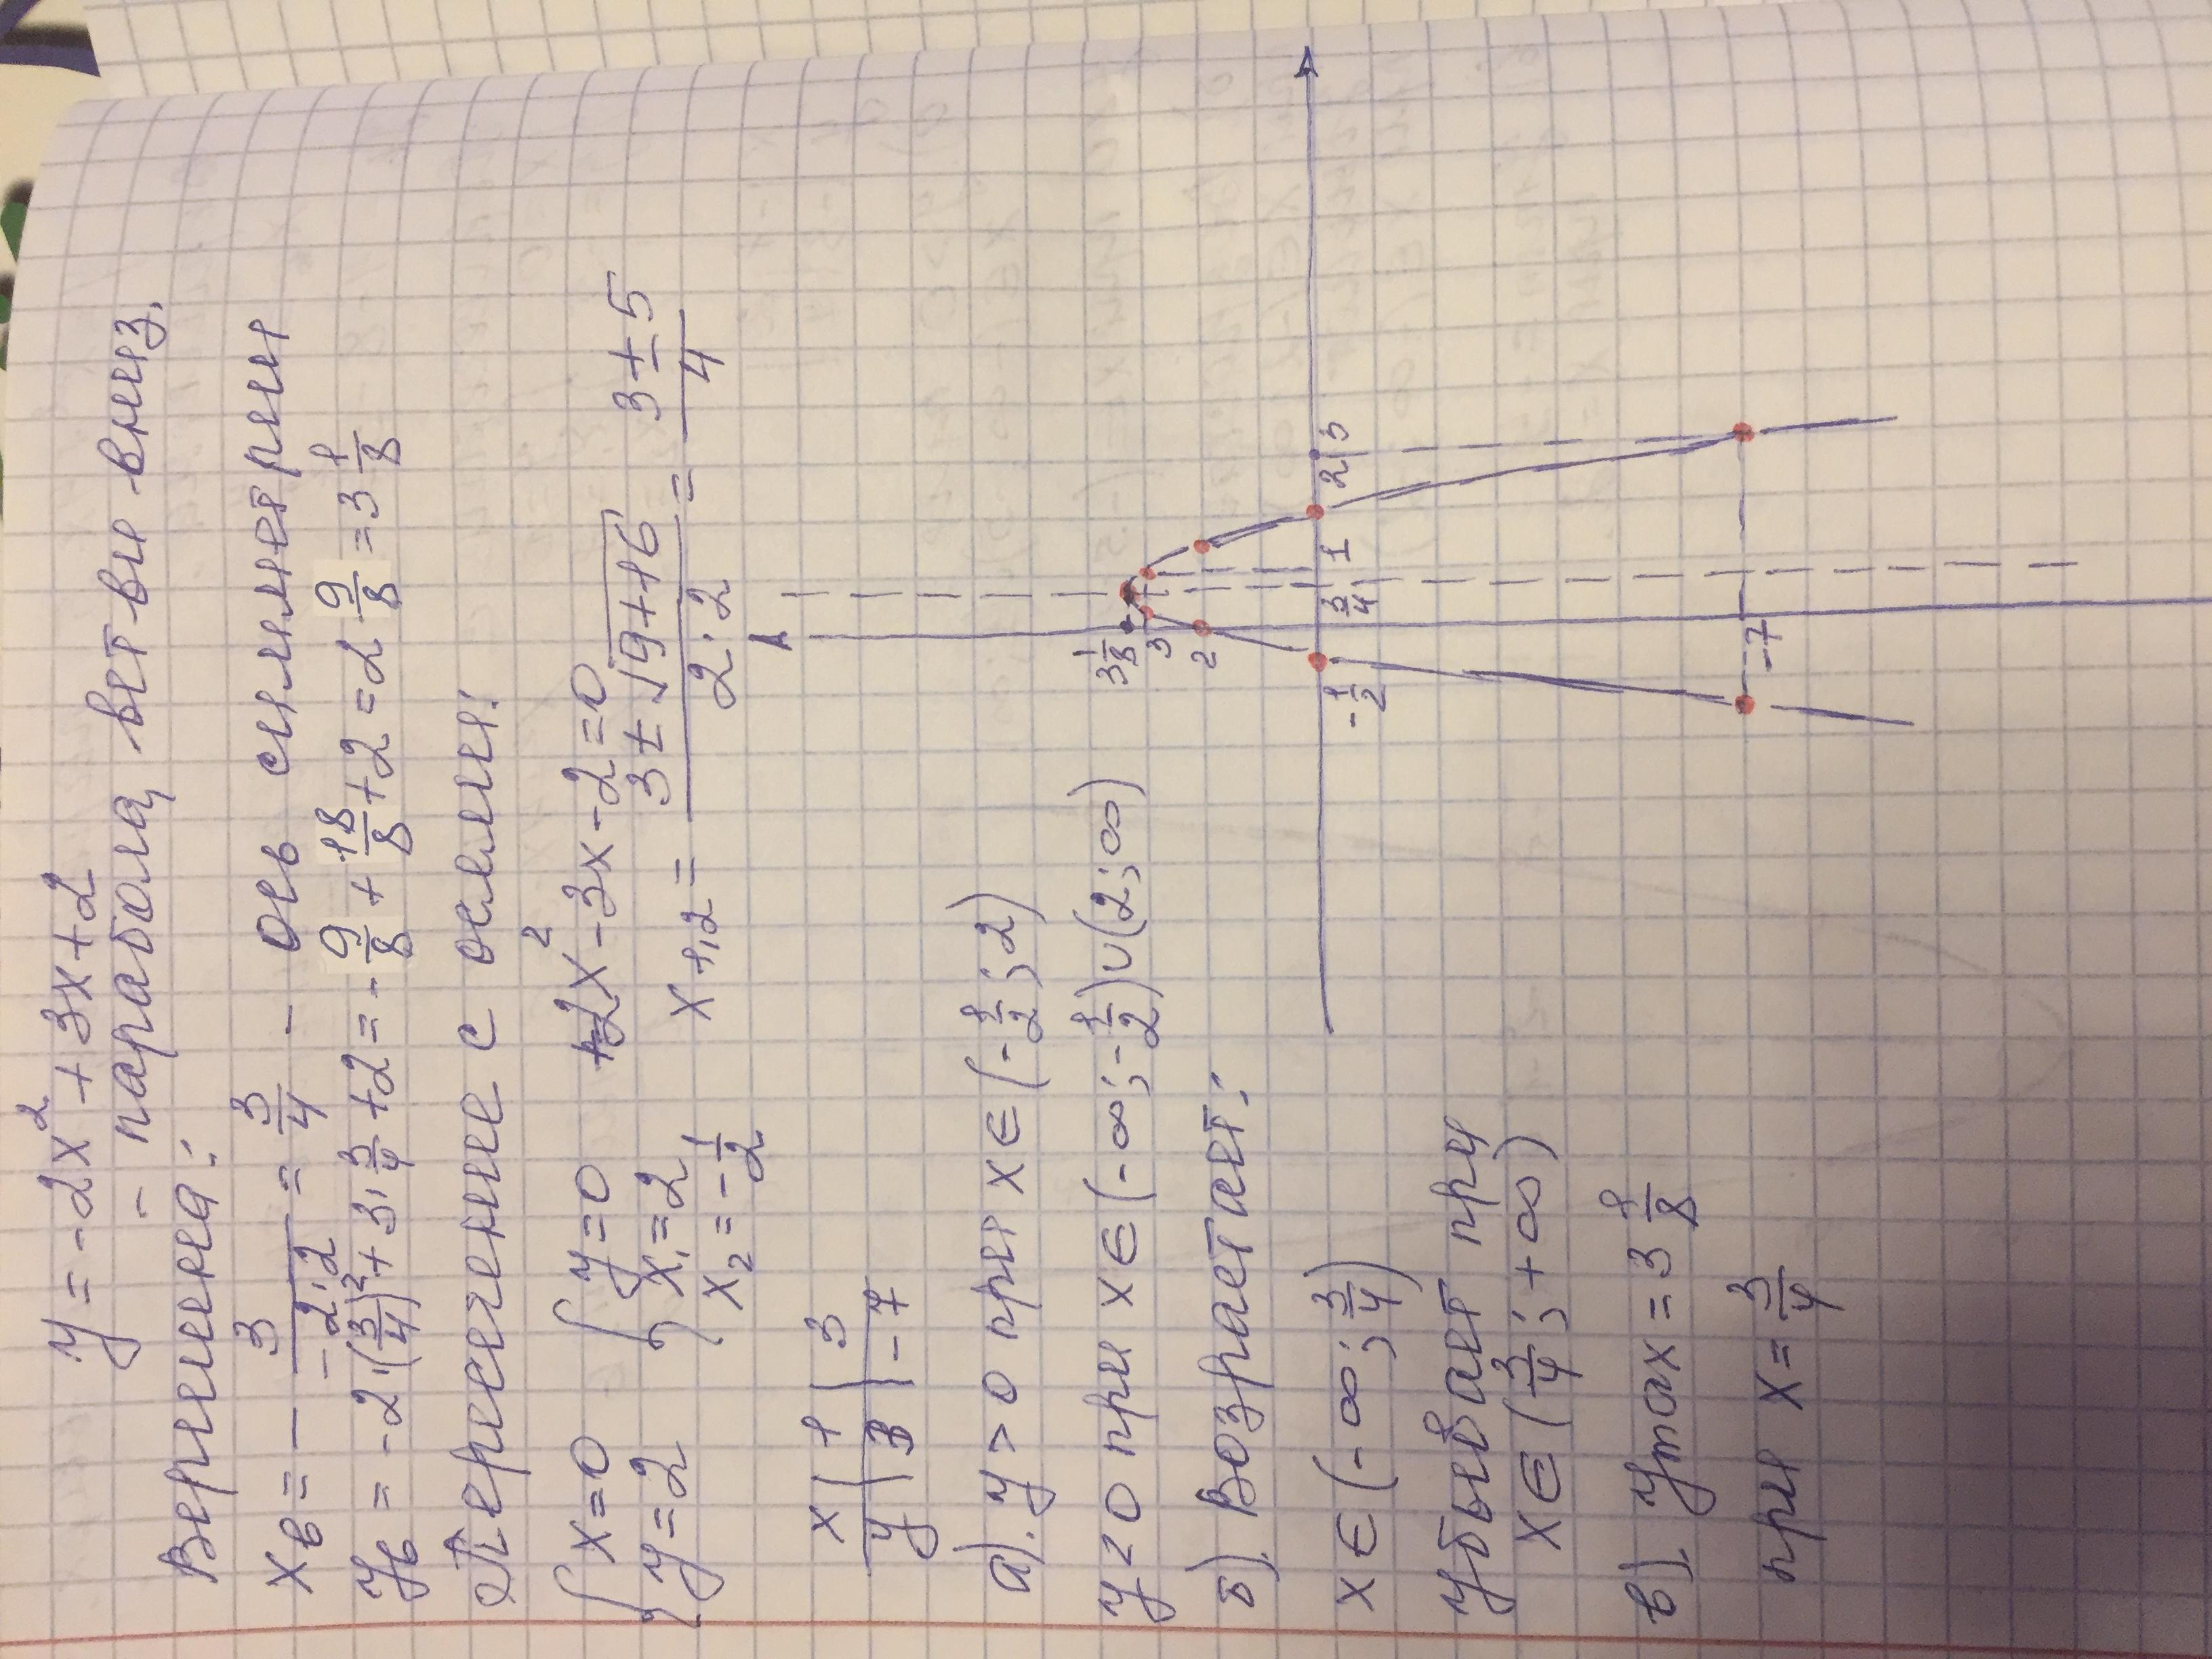 y = -2x² + 3x + 2
- парабола, ветви вниз.
Вершина:
xв = - 3/(-2·2) = 3/4 - ось симметрии
yв = -2·(3/4)² + 3·3/4 + 2 = -9/8 + 18/8 + 2 = 2 9/8 = 3 1/8
Пересечение с осями:
{ x=0 { y=0 2x² - 3x - 2 = 0
y=2 x₁=2 x₁,₂ = (3 ± √(9+16))/(2·2) = (3 ± 5)/4
x₂ = -1/2
x | 1 | 3
y | 3 | -7
а). y > 0 при x ∈ (-1/2; 2)
y < 0 при x ∈ (-∞; -1/2) ∪ (2; ∞)
б). Возрастает:
x ∈ (-∞; 3/4)
убывает при
x ∈ (3/4; +∞)
в). ymax = 3 1/8
при x = 3/4
3 1/8
3
2
-1/2 3/4 1 2 3
-7